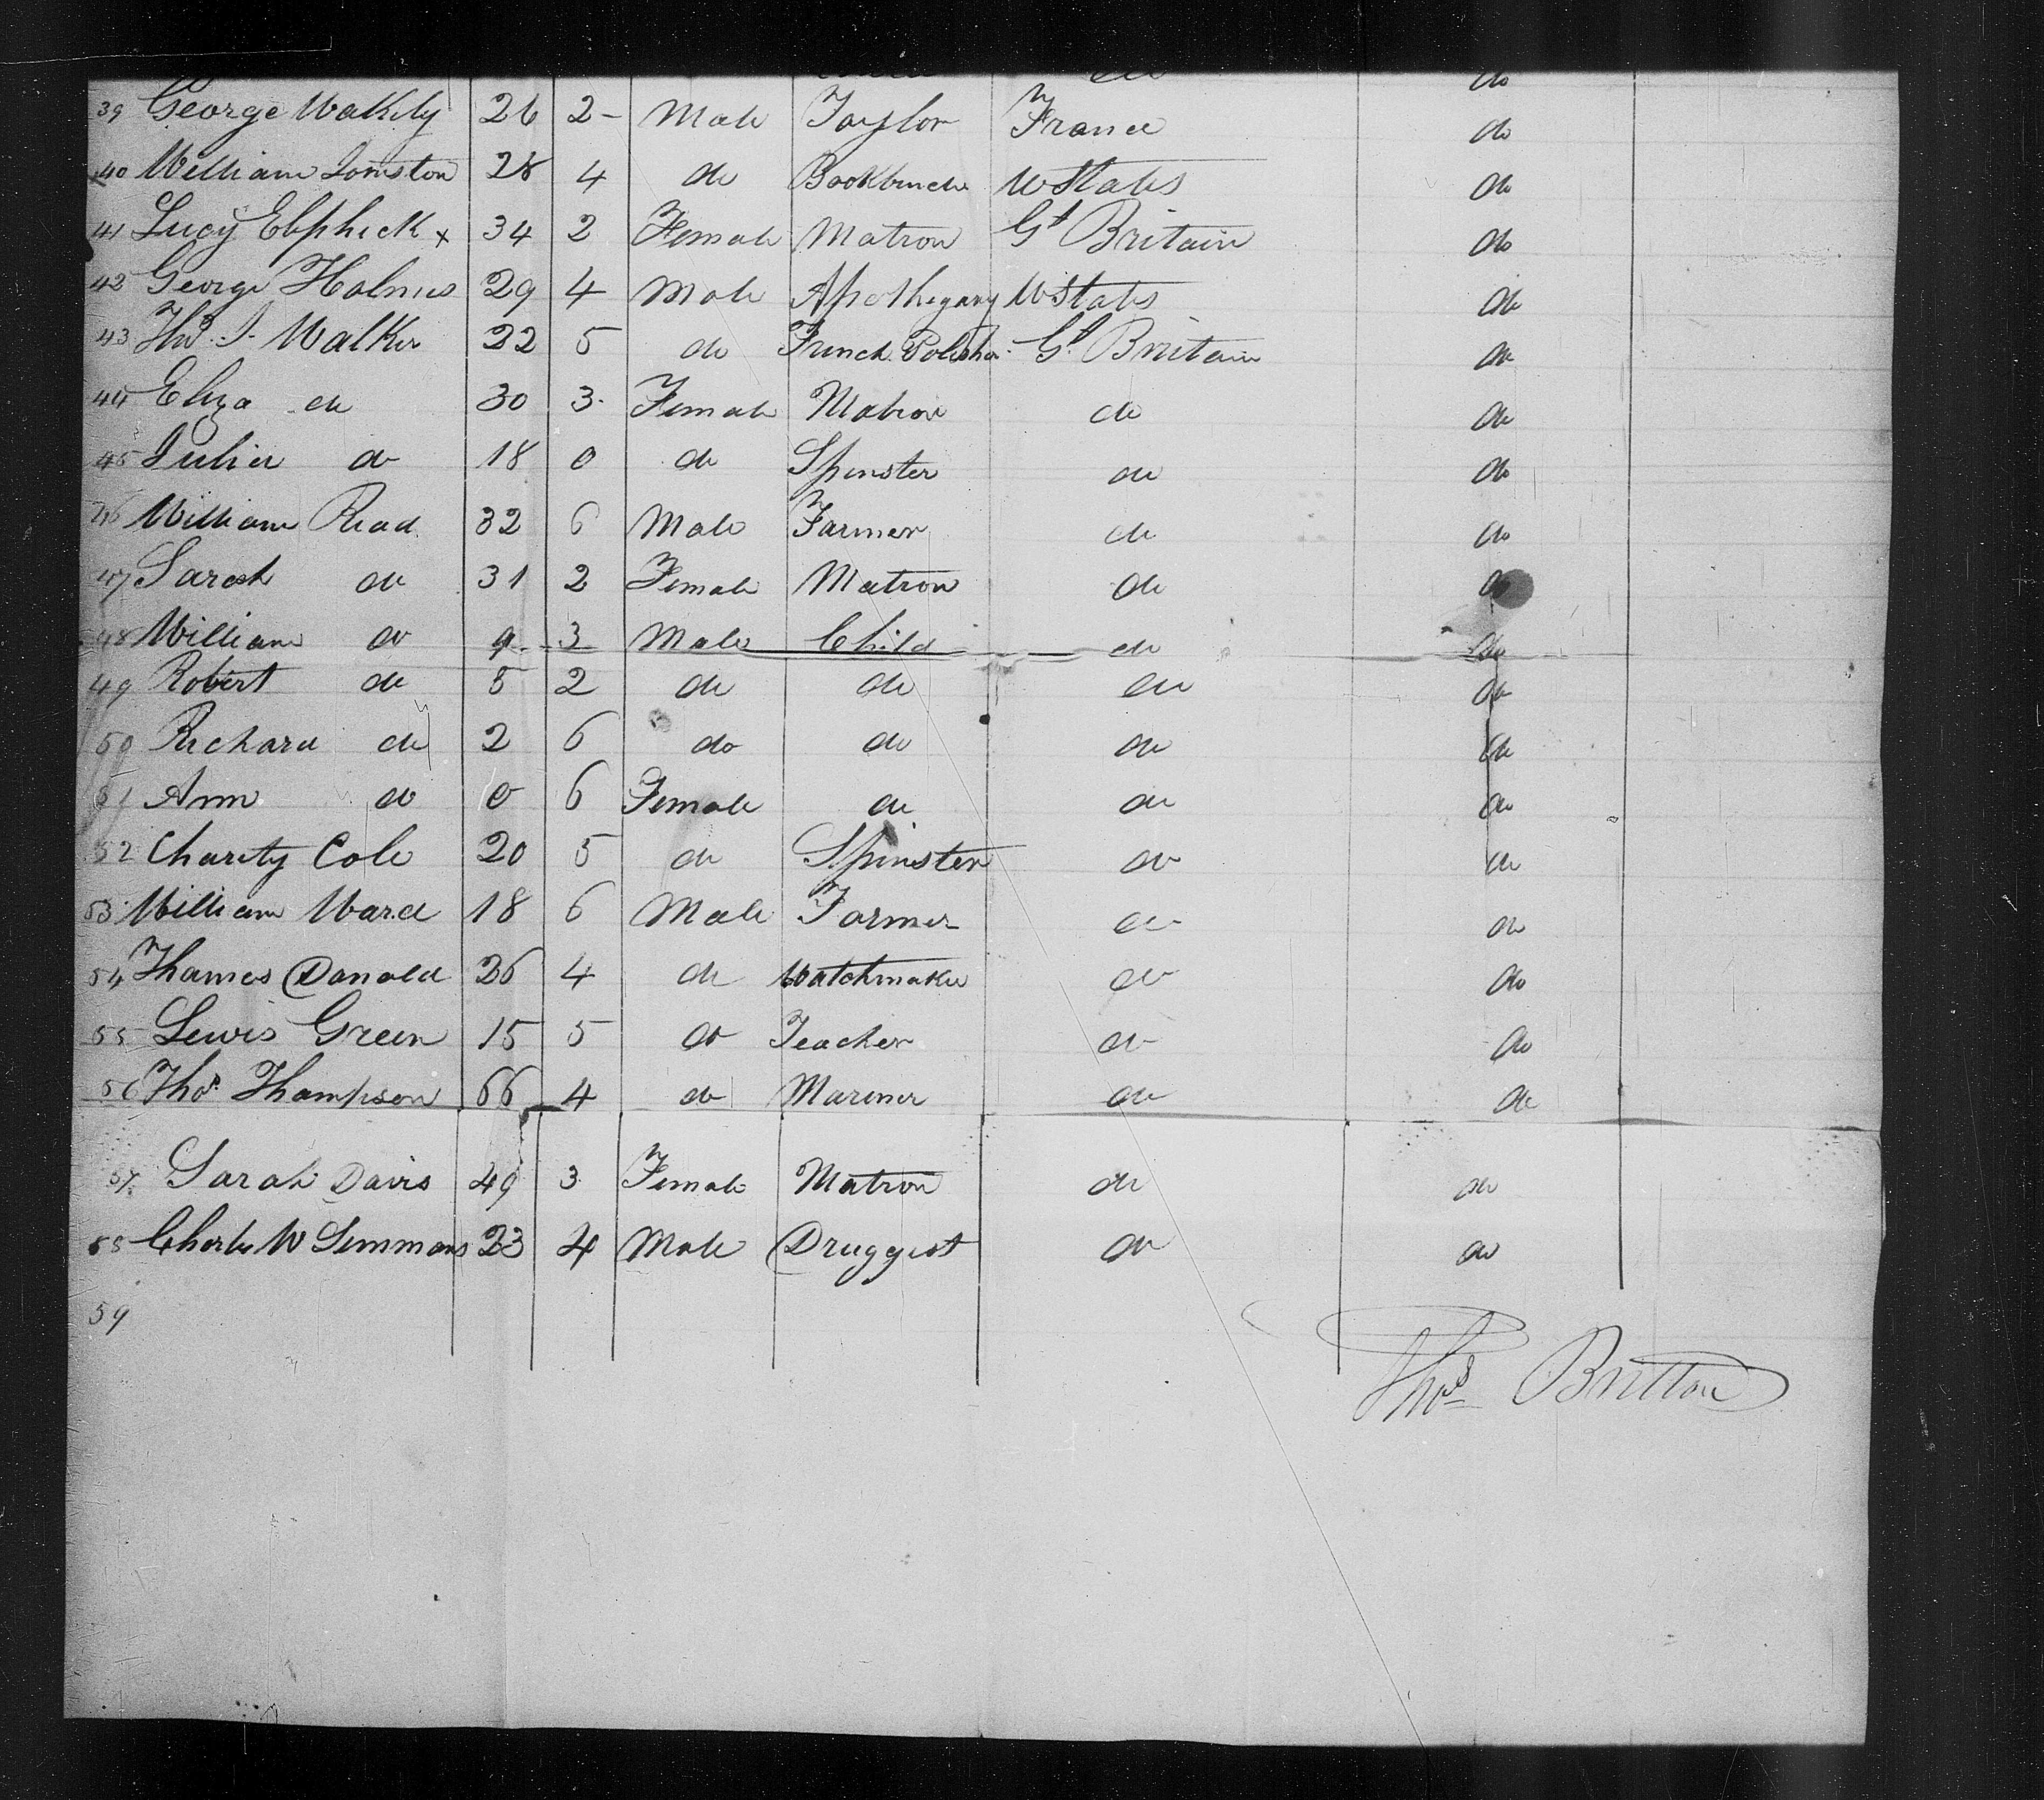 do do
39 George Wakily 26 2 - Male Taylor France do
40 William Lomston 28 4 do Bookbinder U States do
41 Lucy Elphick x 34 2 Female Matron Gt Britain do
42 George Holmes 29 4 Male Apothegary U States do
43 Thos. J. Walker 22 5 do French Polisher Gt. Britain do
44 Eliza do 30 3 Female Matron do do
45 Julia do 18 0 do Spinster do do
46 William Read 32 6 Male Farmer do do
47 Sarah do 31 2 Female Matron do do
48 William do 9 3 Male Child do do
49 Robert do 5 2 do do do do
50 Richard do 2 6 do do do do
51 Ann do 0 6 Female do do do
52 Charity Cole 20 5 do Spinster do do
53 William Ward 18 6 Male Farmer do do
54 Thames Donald 26 4 do Watchmaker do do
55 Lewis Green 15 5 do Teacher do do
56 Thos. Thompson 66 4 do Mariner do do
57 Sarah Davis 49 3 Female Matron do do
58 Charles W Simmons 23 4 Male Druggist do do
59
Thos Britton